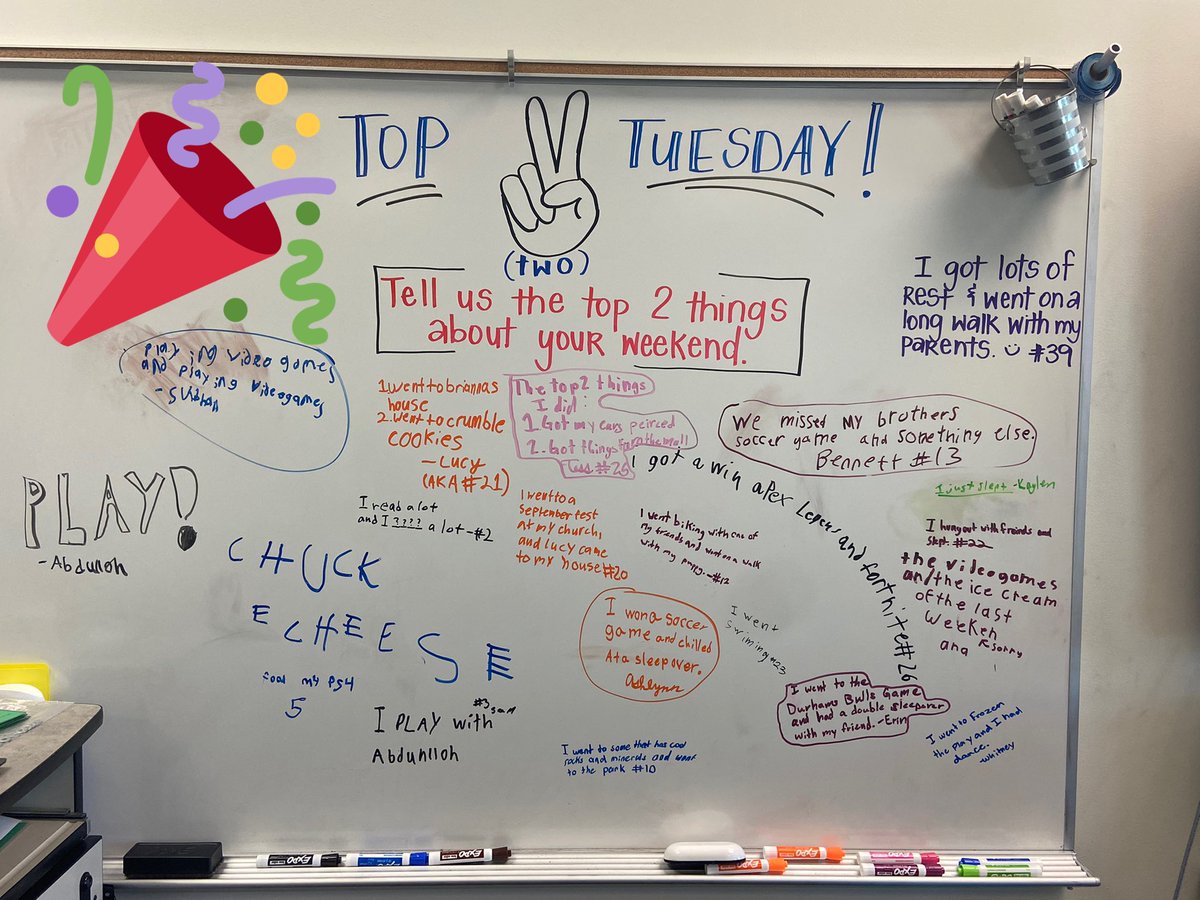 TOP
TUESDAY!
(two)
Tell us the top 2 things
about your weekend.
I got lots of
Rest & went on a
long walk with my
parents. #39
play ing video games
and playing videogames
1. went to briannas
house
2. went to crumble
cookies
- Lucy
(AKA #21)
The top 2 things
I did:
1. Got my ears peirced
2. Got things from the mall
Tess #25
We missed my brothers
soccer game and something else.
Bennett #13
I just slept - Kaylen
I got a win apex Legens and forthite #26
PLAY!
- Abdulloh
I read a lot
and I ???? a lot - #2
I went to a
September fest
at my church,
and Lucy came
to my house #20
I went biking with one of
my friends and went on a walk
with my puppy. - #12
I hung out with freinds and
slept. #22
the videogames
an/the ice cream
of the last
weeken
and
sorry
CHUCK
E CHEESE
my PS4
5
I won a soccer
game and chilled
At a sleepover.
Ashlynn
I went
swiming #23
I went to the
Durhams Bulls Game
and had a double sleepover
with my friend. - Erin
#3 sam
I PLAY with
Abdunlloh
I went to some that has cool
rocks and minerals and went
to the park #10
I went to Frozen
the play and I had
dance.
- whitney
EXPO
EXPO
EXPO
EXPO
EXPO
EXPO